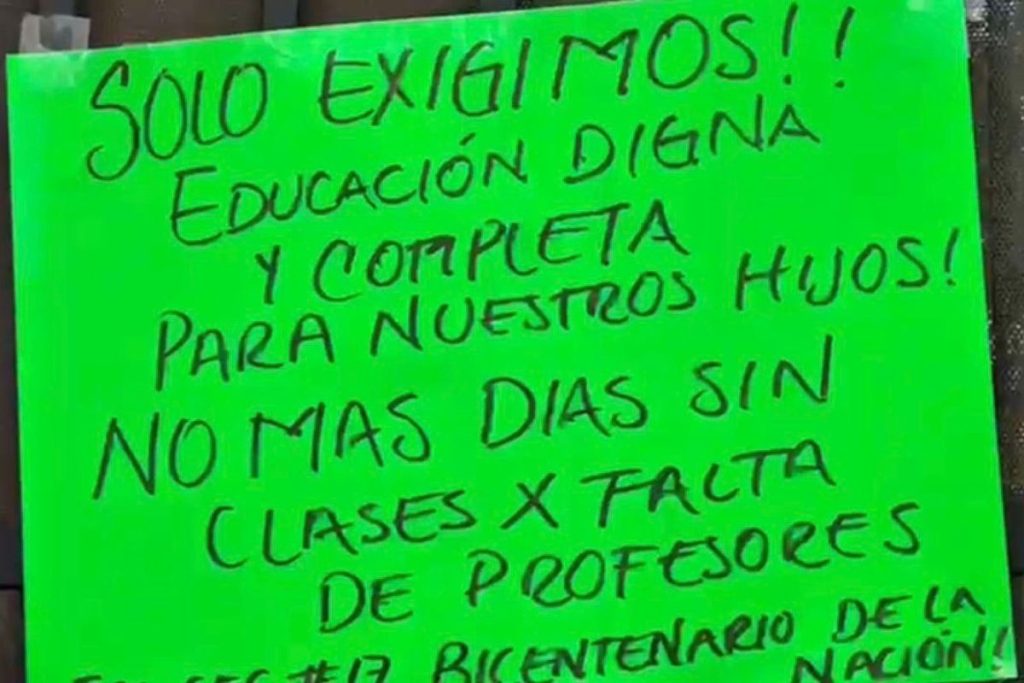 SOLO EXIGIMOS!!
EDUCACIÓN DIGNA
Y COMPLETA
PARA NUESTROS HIJOS!
NO MAS DIAS SIN
CLASES X FALTA
DE PROFESORES
#17 BICENTENARIO DE LA
NACIÓN!